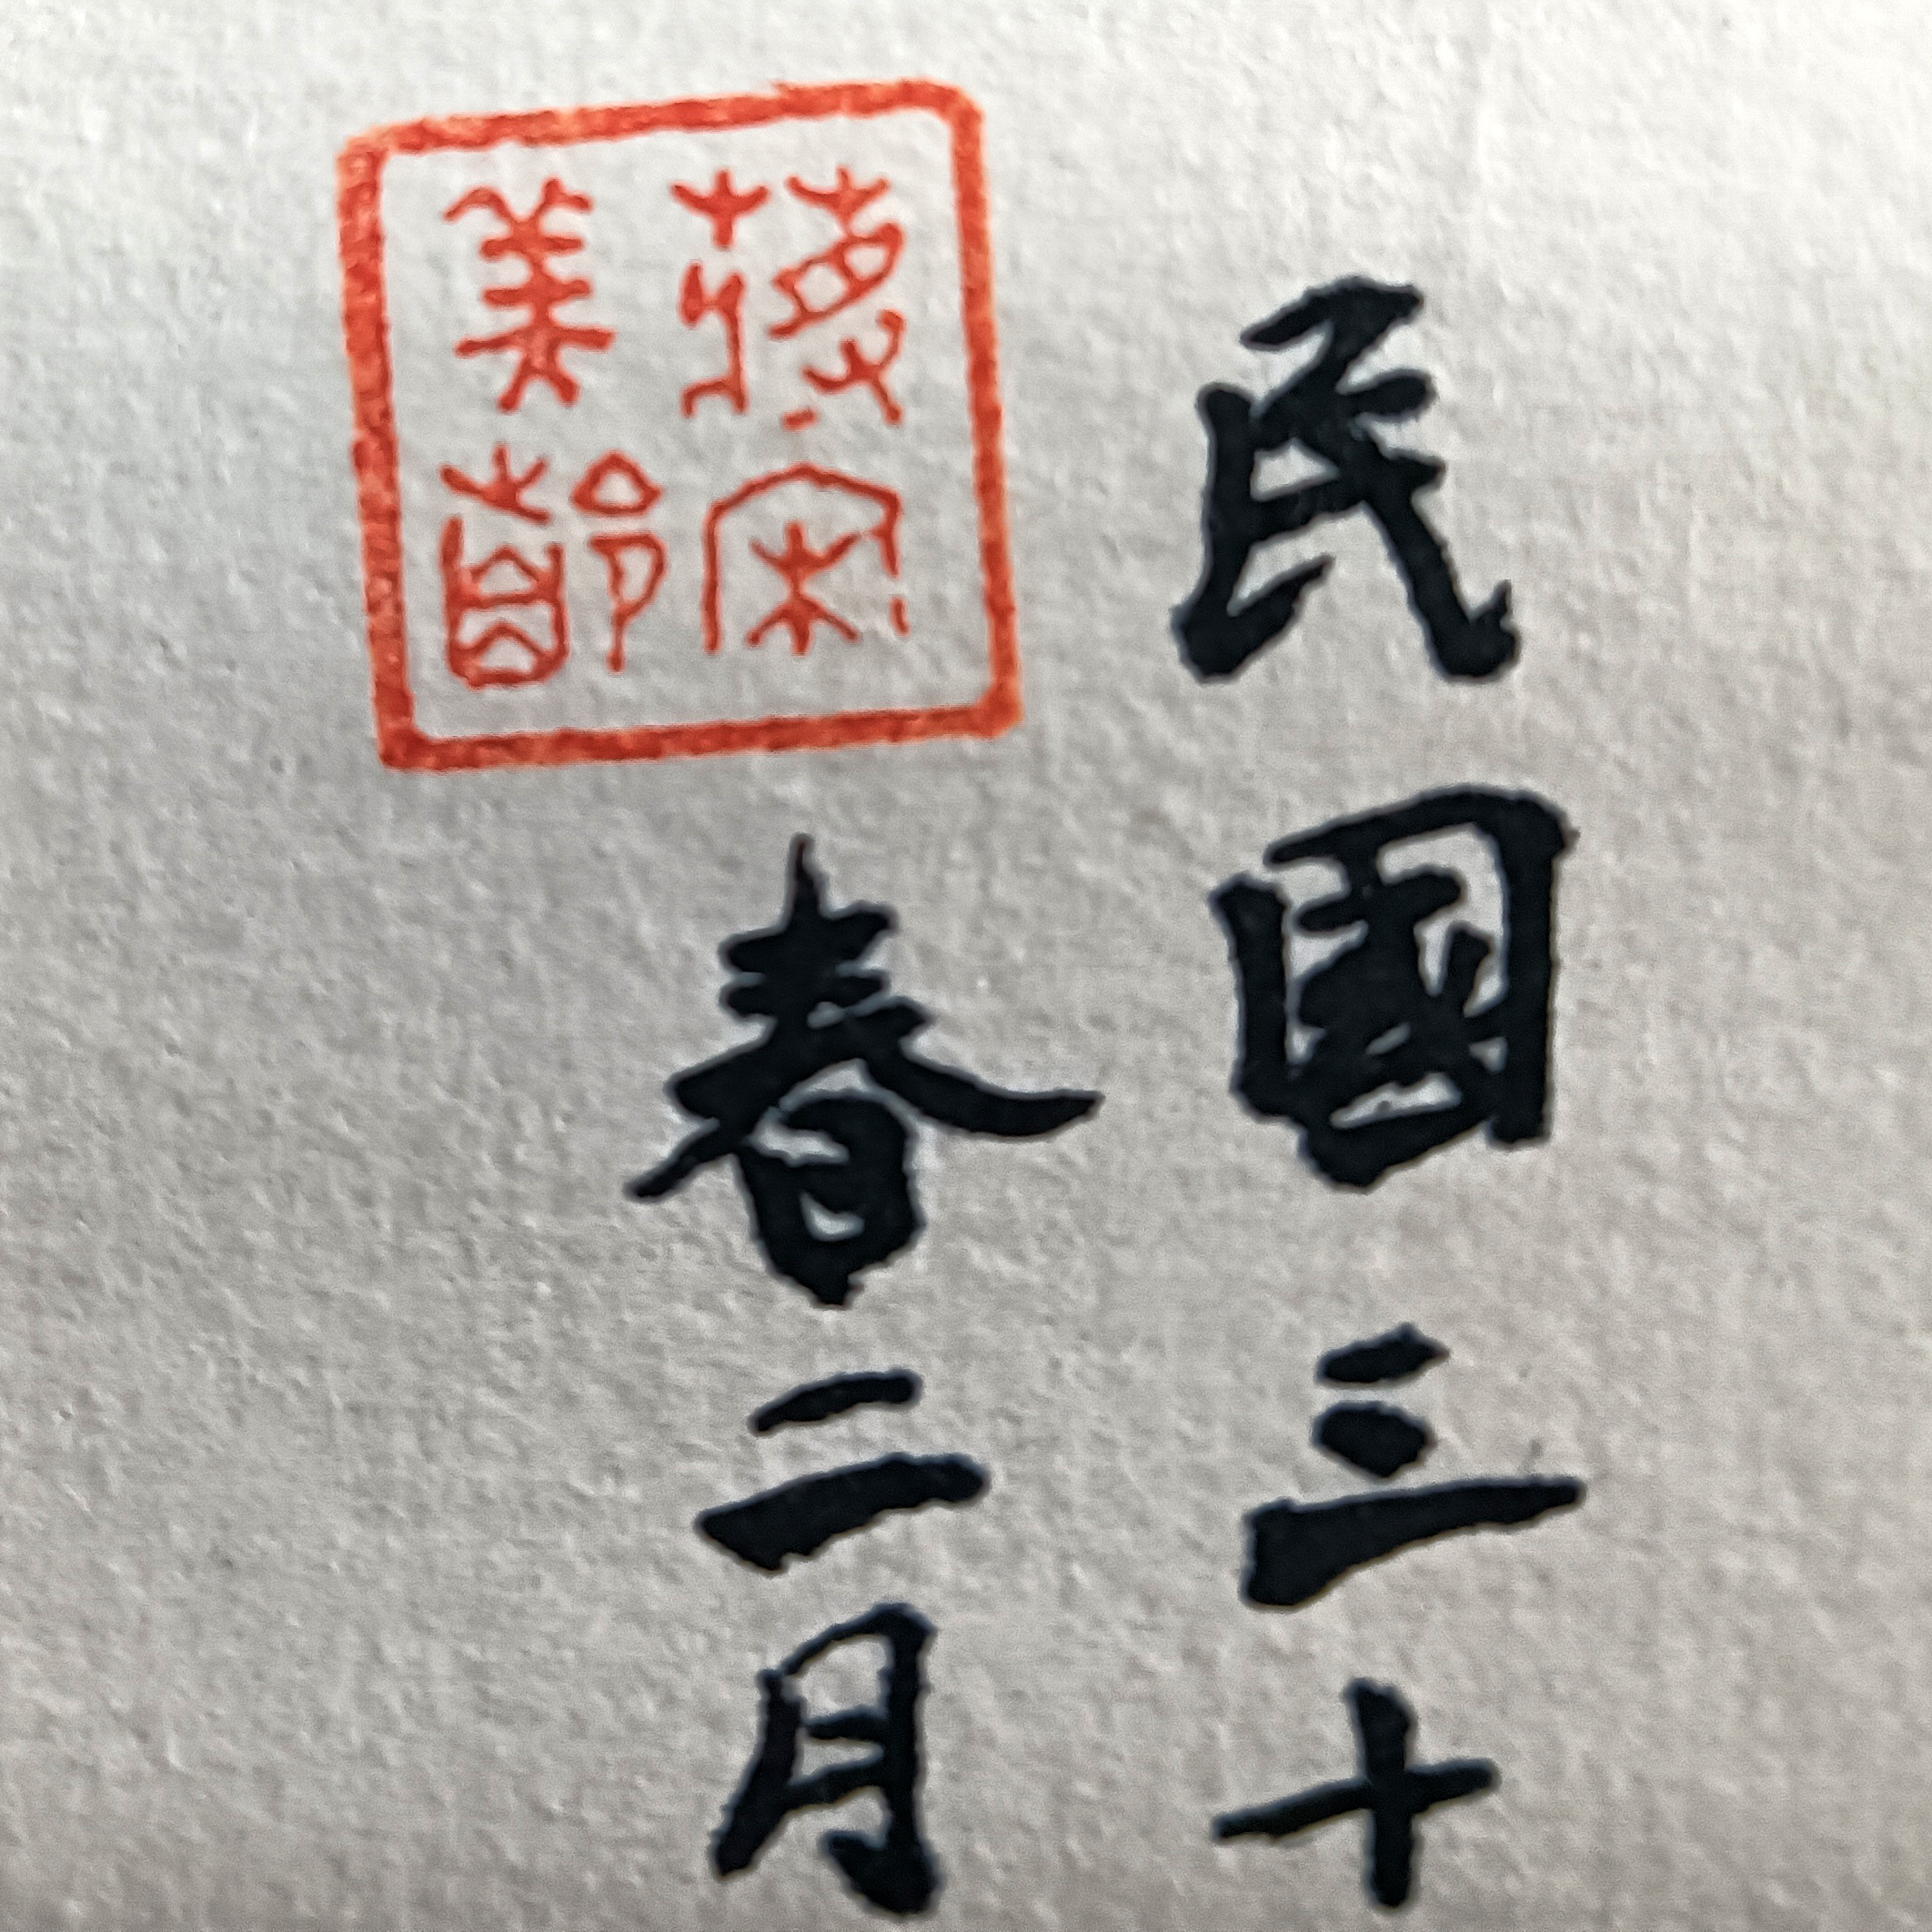 民國三十
春二月
蔣宋
美齡